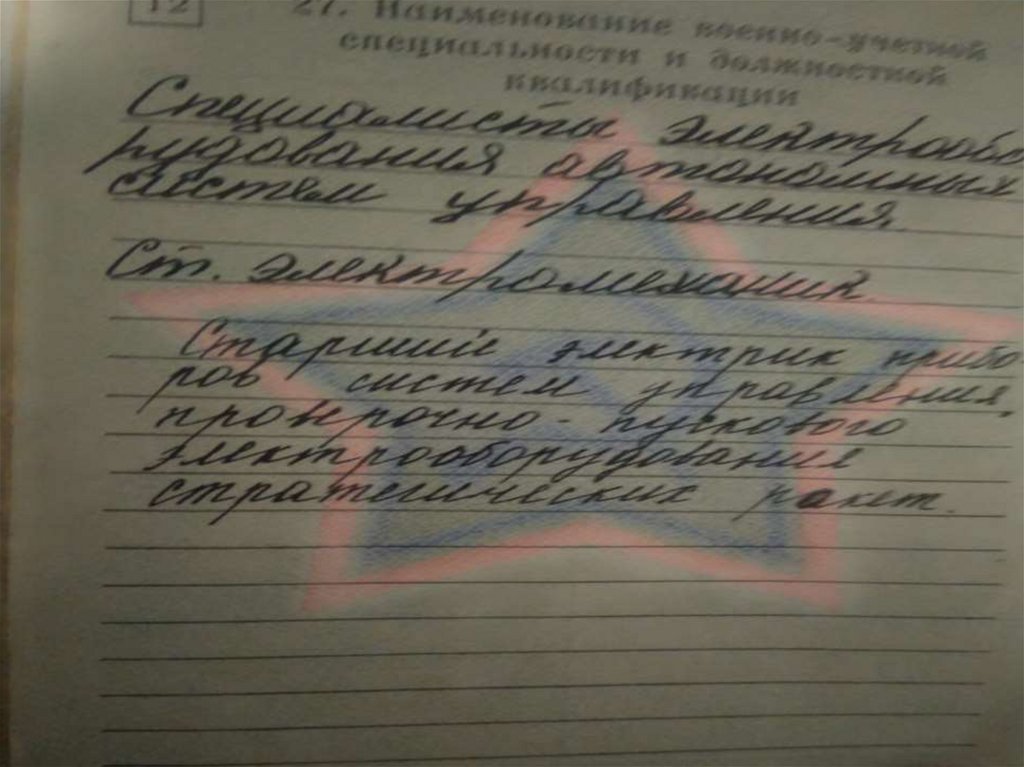 12
27. Наименование военно-учетной
специальности и должностной
квалификации
Специалисты электрообо
рудования автономных
систем управления.
Ст. электромеханик.
Старший электрик прибо
ров систем управления,
проверочно-пускового
электрооборудования
стратегических ракет.